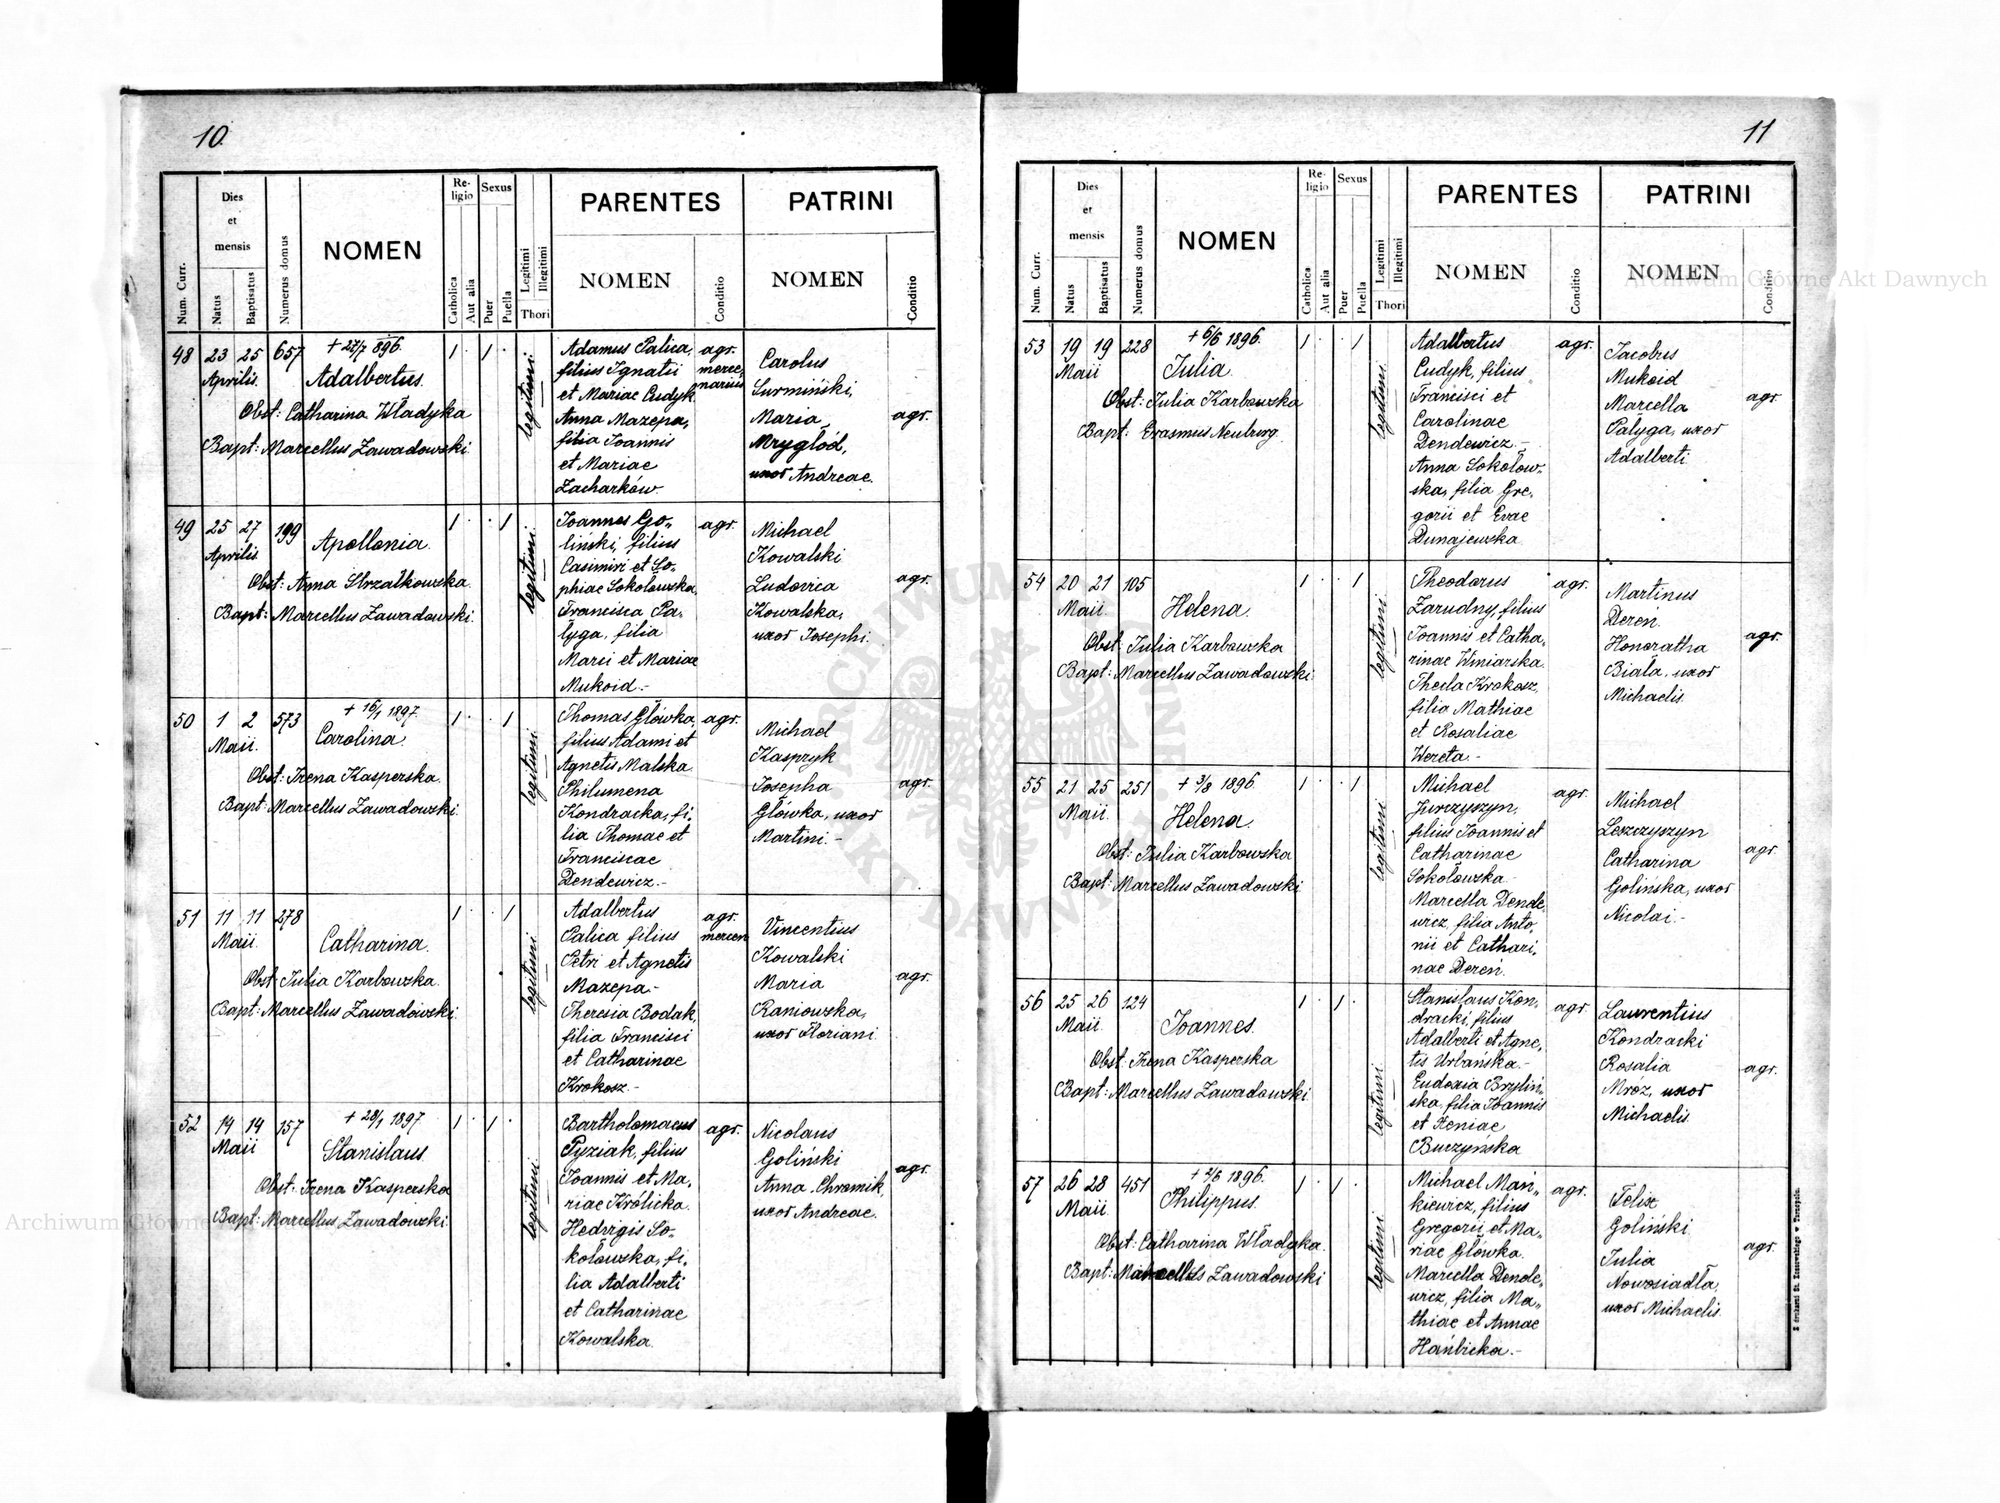 10.
Num. Curr.
Dies
et
mensis
Natus
Baptisatus
Numerus domus
NOMEN
Re-
ligio
Catholica
Aut alia
Sexus
Puer
Puella
Legitimi
Illegitimi
Thori
PARENTES
NOMEN
Conditio
PATRINI
NOMEN
Conditio
48 23 25 657 + 27/7 896.
Aprilis. Adalbertus.
Obst: Catharina Władyka
Bapt: Marcellus Zawadowski.
legitimi
Adamus Palica,
filius Ignatii
et Mariae Cudyk
Anna Mazepa,
filia Joannis
et Mariae
Zacharków.
agr.
merce,
narius
Carolus
Surmiński,
Maria
Mrygłód,
uxor Andreae.
agr.
49 25 27 199
Aprilis Apollonia.
Obst: Anna Strzałkowska
Bapt: Marcellus Zawadowski.
legitimi
Joannes Go„
liński, filius
Casimiri et So„
phiae Sokołowska,
Francisca Pa„
łyga, filia
Marci et Mariae
Mukoid.-
agr.
Michael
Kowalski
Ludovica
Kowalska,
uxor Josephi.
agr.
50 1 2 573 + 16/1 1897.
Maii. Carolina.
Obst: Irena Kasperska.
Bapt: Marcellus Zawadowski.
legitimi
Thomas Główka,
filius Adami et
Agnetis Malska.
Philumena
Kondracka, fi„
lia Thomae et
Franciscae
Dendewicz.-
agr.
Michael
Kaspryk
Josepha
Główka, uxor
Martini.-
agr.
51 11 11 278
Maii. Catharina.
Obst: Julia Karbowska.
Bapt: Marcellus Zawadowski.
legitimi
Adalbertus
Palica filius
Petri et Agnetis
Mazepa.-
Theresia Bodak,
filia Francisci
et Catharinae
Krokosz.-
agr.
mercen
Vincentius
Kowalski
Maria
Raniowska,
uxor Floriani.
agr.
52 14 14 157 + 28/1 1897
Maii Stanislaus.
Obst: Irena Kasperska
Bapt: Marcellus Zawadowski.
legitimi
Bartholomaeus
Pyziak, filius
Joannis et Ma„
riae Królicka.
Hedvigis So„
kołowska, fi„
lia Adalberti
et Catharinae
Kowalska.
agr.
Nicolaus
Goliński
Anna Chromik,
uxor Andreae.
agr.
11
Num. Curr.
Dies
et
mensis
Natus
Baptisatus
Numerus domus
NOMEN
Re-
ligio
Catholica
Aut alia
Sexus
Puer
Puella
Legitimi
Illegitimi
Thori
PARENTES
NOMEN
Conditio
PATRINI
NOMEN
Conditio
53 19 19 228 + 6/6 1896.
Maii Julia.
Obst: Julia Karbowska
Bapt: Erasmus Neuburg.
legitimi
Adalbertus
Cudyk, filius
Francisci et
Carolinae
Dendewicz.-
Anna Sokołow„
ska, filia Gre„
gorii et Evae
Dunajewska.
agr.
Jacobus
Mukoid
Marcella
Pałyga, uxor
Adalberti.
agr.
54 20 21 105
Maii. Helena.
Obst: Julia Karbowska
Bapt: Marcellus Zawadowski.
legitimi
Theodorus
Zarudny, filius
Joannis et Catha„
rinae Winiarska.
Thecla Krokosz,
filia Mathiae
et Rosaliae
Wereta.-
agr.
Martinus
Dereń.
Honoratha
Biała, uxor
Michaelis.
agr.
55 21 25 251 + 3/8 1896.
Maii. Helena.
Obst: Julia Karbowska
Bapt: Marcellus Zawadowski
legitimi
Michael
Jurczyszyn,
filius Joannis et
Catharinae
Sokołowska.-
Marcella Dende„
wicz, filia Anto„
nii et Cathari„
nae Dereń.
agr.
Michael
Leszczyszyn
Catharina
Golińska, uxor
Nicolai.-
agr.
56 25 26 124
Maii. Joannes.
Obst: Irena Kasperska
Bapt: Marcellus Zawadowski.
legitimi
Stanislaus Kon„
dracki, filius
Adalberti et Agne„
tis Urbańska.-
Eudoxia Bryliń„
ska, filia Joannis
et Xeniae
Buczyńska
agr.
Laurentius
Kondracki
Rosalia
Mróz, uxor
Michaelis.
agr.
57 26 28 451 + 2/6 1896.
Maii. Philippus.
Obst: Catharina Władyka.
Bapt: Marcellus Zawadowski
legitimi
Michael Man„
kiewicz, filius
Gregorii et Ma„
riae Główka.
Marcella Dende„
wicz, filia Ma„
thiae et Annae
Hańbicka.-
agr.
Felix
Goliński
Julia
Nowosiadła,
uxor Michaelis.
agr.
Z drukarni St. Kossowskiego w Tarnopolu.
Archiwum Główne Akt Dawnych
Archiwum Główne
ARCHIWUM GŁÓWNE AKT DAWNYCH